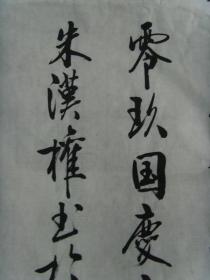 零玖国慶
朱漢權书於